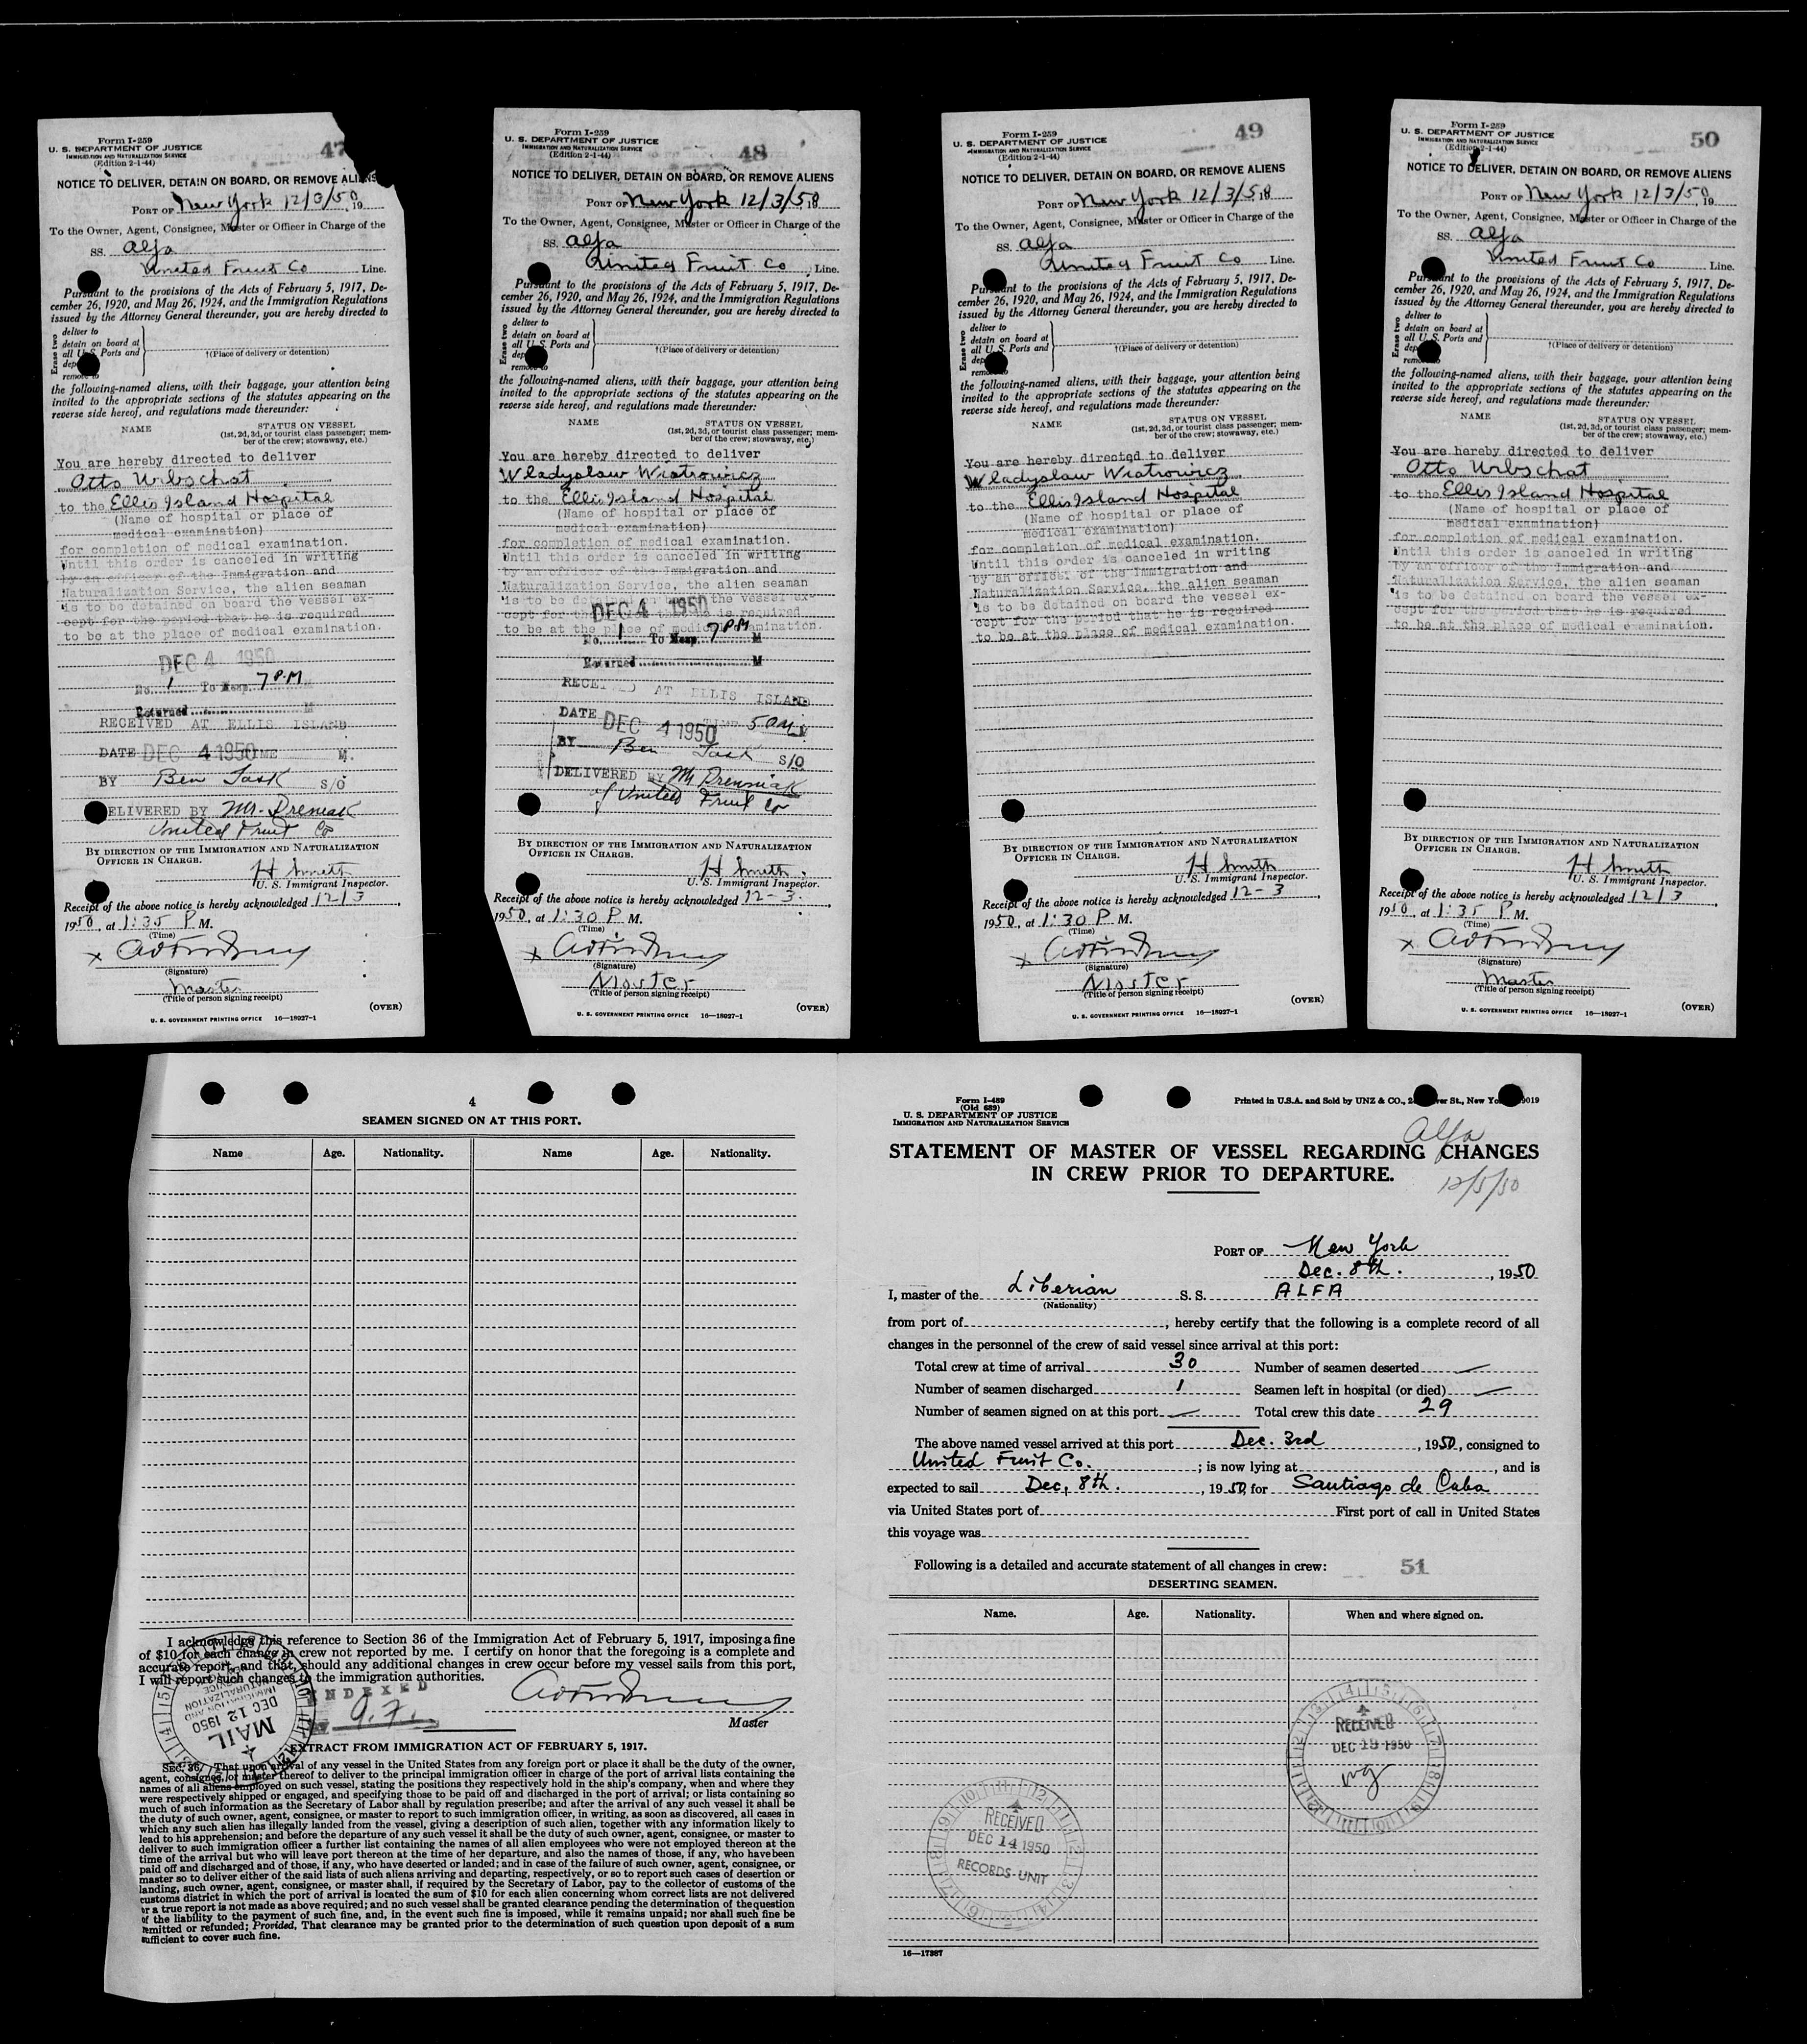 Form I-259
U. S. DEPARTMENT OF JUSTICE
IMMIGRATION AND NATURALIZATION SERVICE
(Edition 2-1-44)
47
NOTICE TO DELIVER, DETAIN ON BOARD, OR REMOVE ALIENS
PORT OF New York 12/3/50, 19
To the Owner, Agent, Consignee, Master or Officer in Charge of the
SS. Alfa
United Fruit Co Line.
Pursuant to the provisions of the Acts of February 5, 1917, De-
cember 26, 1920, and May 26, 1924, and the Immigration Regulations
issued by the Attorney General thereunder, you are hereby directed to
Erase two
deliver to
detain on board at
all U. S. Ports and
dep
remove to
†(Place of delivery or detention)
the following-named aliens, with their baggage, your attention being
invited to the appropriate sections of the statutes appearing on the
reverse side hereof, and regulations made thereunder:
NAME
STATUS ON VESSEL
(1st, 2d, 3d, or tourist class passenger; mem-
ber of the crew; stowaway, etc.)
You are hereby directed to deliver
Otto Urbschat
to the Ellis Island Hospital
(Name of hospital or place of
medical examination)
for completion of medical examination.
Until this order is canceled in writing
by an officer of the Immigration and
Naturalization Service, the alien seaman
is to be detained on board the vessel ex-
cept for the period that he is required
to be at the place of medical examination.
DEC 4 1950
No. 1 To Hosp. 7 P.M
Returned M
RECEIVED AT ELLIS ISLAND
DATE DEC 4 1950 TIME M.
BY Ben Task S/O
DELIVERED BY Mr. Dreniak
United Fruit Co
BY DIRECTION OF THE IMMIGRATION AND NATURALIZATION
OFFICER IN CHARGE.
H Smith
U. S. Immigrant Inspector.
Receipt of the above notice is hereby acknowledged 12/3,
1950, at 1:35 P M.
(Time)
x
(Signature)
Master
(Title of person signing receipt)
(OVER)
U. S. GOVERNMENT PRINTING OFFICE 16—18927-1
Form I-259
U. S. DEPARTMENT OF JUSTICE
IMMIGRATION AND NATURALIZATION SERVICE
(Edition 2-1-44)
48
NOTICE TO DELIVER, DETAIN ON BOARD, OR REMOVE ALIENS
PORT OF New York 12/3/5, 18
To the Owner, Agent, Consignee, Master or Officer in Charge of the
SS. Alfa
United Fruit Co, Line.
Pursuant to the provisions of the Acts of February 5, 1917, De-
cember 26, 1920, and May 26, 1924, and the Immigration Regulations
issued by the Attorney General thereunder, you are hereby directed to
Erase two
deliver to
detain on board at
all U. S. Ports and
dep
remove to
†(Place of delivery or detention)
the following-named aliens, with their baggage, your attention being
invited to the appropriate sections of the statutes appearing on the
reverse side hereof, and regulations made thereunder:
NAME
STATUS ON VESSEL
(1st, 2d, 3d, or tourist class passenger; mem-
ber of the crew; stowaway, etc.)
You are hereby directed to deliver
Wladyslaw Wiatrowicz
to the Ellis Island Hospital
(Name of hospital or place of
medical examination)
for completion of medical examination.
Until this order is canceled in writing
by an officer of the Immigration and
Naturalization Service, the alien seaman
is to be detained on board the vessel ex-
cept for the period that he is required
to be at the place of medical examination.
DEC 4 1950
No. 1 To Hosp. 7 PM M
Returned M
RECEIVED AT ELLIS ISLAND
DATE DEC 4 1950 TIME 50 M
BY Ben Task S/O
DELIVERED BY Mr Drenniak
of United Fruit Co
BY DIRECTION OF THE IMMIGRATION AND NATURALIZATION
OFFICER IN CHARGE.
H Smith.
U. S. Immigrant Inspector.
Receipt of the above notice is hereby acknowledged 12-3.
1950, at 1:30 P M.
(Time)
x
(Signature)
Master
(Title of person signing receipt)
(OVER)
U. S. GOVERNMENT PRINTING OFFICE 16—18927-1
Form I-259
U. S. DEPARTMENT OF JUSTICE
IMMIGRATION AND NATURALIZATION SERVICE
(Edition 2-1-44)
49
NOTICE TO DELIVER, DETAIN ON BOARD, OR REMOVE ALIENS
PORT OF New York 12/3/5, 18
To the Owner, Agent, Consignee, Master or Officer in Charge of the
SS. Alfa
United Fruit Co Line.
Pursuant to the provisions of the Acts of February 5, 1917, De-
cember 26, 1920, and May 26, 1924, and the Immigration Regulations
issued by the Attorney General thereunder, you are hereby directed to
Erase two
deliver to
detain on board at
all U. S. Ports and
dep
remove to
†(Place of delivery or detention)
the following-named aliens, with their baggage, your attention being
invited to the appropriate sections of the statutes appearing on the
reverse side hereof, and regulations made thereunder:
NAME
STATUS ON VESSEL
(1st, 2d, 3d, or tourist class passenger; mem-
ber of the crew; stowaway, etc.)
You are hereby directed to deliver
Wladyslaw Wiatrowicz
to the Ellis Island Hospital
(Name of hospital or place of
medical examination)
for completion of medical examination.
Until this order is canceled in writing
by an officer of the Immigration and
Naturalization Service, the alien seaman
is to be detained on board the vessel ex-
cept for the period that he is required
to be at the place of medical examination.
BY DIRECTION OF THE IMMIGRATION AND NATURALIZATION
OFFICER IN CHARGE.
H Smith
U. S. Immigrant Inspector.
Receipt of the above notice is hereby acknowledged 12-3,
1950, at 1:30 P M.
(Time)
x
(Signature)
Master
(Title of person signing receipt)
(OVER)
U. S. GOVERNMENT PRINTING OFFICE 16—18927-1
Form I-259
U. S. DEPARTMENT OF JUSTICE
IMMIGRATION AND NATURALIZATION SERVICE
(Edition 2-1-44)
50
NOTICE TO DELIVER, DETAIN ON BOARD, OR REMOVE ALIENS
PORT OF New York 12/3/50, 19
To the Owner, Agent, Consignee, Master or Officer in Charge of the
SS. Alfa
United Fruit Co Line.
Pursuant to the provisions of the Acts of February 5, 1917, De-
cember 26, 1920, and May 26, 1924, and the Immigration Regulations
issued by the Attorney General thereunder, you are hereby directed to
Erase two
deliver to
detain on board at
all U. S. Ports and
dep
remove to
†(Place of delivery or detention)
the following-named aliens, with their baggage, your attention being
invited to the appropriate sections of the statutes appearing on the
reverse side hereof, and regulations made thereunder:
NAME
STATUS ON VESSEL
(1st, 2d, 3d, or tourist class passenger; mem-
ber of the crew; stowaway, etc.)
You are hereby directed to deliver
Otto Urbschat
to the Ellis Island Hospital
(Name of hospital or place of
medical examination)
for completion of medical examination.
Until this order is canceled in writing
by an officer of the Immigration and
Naturalization Service, the alien seaman
is to be detained on board the vessel ex-
cept for the period that he is required
to be at the place of medical examination.
BY DIRECTION OF THE IMMIGRATION AND NATURALIZATION
OFFICER IN CHARGE.
H Smith
U. S. Immigrant Inspector.
Receipt of the above notice is hereby acknowledged 12/3,
1950, at 1:35 P M.
(Time)
x
(Signature)
Master
(Title of person signing receipt)
(OVER)
U. S. GOVERNMENT PRINTING OFFICE 16—18927-1
4
SEAMEN SIGNED ON AT THIS PORT.
Name Age. Nationality. Name Age. Nationality.
I acknowledge this reference to Section 36 of the Immigration Act of February 5, 1917, imposing a fine
of $10 for each change in crew not reported by me. I certify on honor that the foregoing is a complete and
accurate report, and that, should any additional changes in crew occur before my vessel sails from this port,
I will report such changes to the immigration authorities.
INDEXED
Master
MAIL
DEC 12 1950
IMMIGRATION AND
NATURALIZATION
SERVICE
EXTRACT FROM IMMIGRATION ACT OF FEBRUARY 5, 1917.
SEC. 36. That upon arrival of any vessel in the United States from any foreign port or place it shall be the duty of the owner,
agent, consignee, or master thereof to deliver to the principal immigration officer in charge of the port of arrival lists containing the
names of all aliens employed on such vessel, stating the positions they respectively hold in the ship's company, when and where they
were respectively shipped or engaged, and specifying those to be paid off and discharged in the port of arrival; or lists containing so
much of such information as the Secretary of Labor shall by regulation prescribe; and after the arrival of any such vessel it shall be
the duty of such owner, agent, consignee, or master to report to such immigration officer, in writing, as soon as discovered, all cases in
which any such alien has illegally landed from the vessel, giving a description of such alien, together with any information likely to
lead to his apprehension; and before the departure of any such vessel it shall be the duty of such owner, agent, consignee, or master to
deliver to such immigration officer a further list containing the names of all alien employees who were not employed thereon at the
time of the arrival but who will leave port thereon at the time of her departure, and also the names of those, if any, who have been
paid off and discharged and of those, if any, who have deserted or landed; and in case of the failure of such owner, agent, consignee, or
master so to deliver either of the said lists of such aliens arriving and departing, respectively, or so to report such cases of desertion or
landing, such owner, agent, consignee, or master shall, if required by the Secretary of Labor, pay to the collector of customs of the
customs district in which the port of arrival is located the sum of $10 for each alien concerning whom correct lists are not delivered
or a true report is not made as above required; and no such vessel shall be granted clearance pending the determination of the question
of the liability to the payment of such fine, and, in the event such fine is imposed, while it remains unpaid; nor shall such fine be
remitted or refunded; Provided, That clearance may be granted prior to the determination of such question upon deposit of a sum
sufficient to cover such fine.
Form I-489
(Old 689)
U. S. DEPARTMENT OF JUSTICE
IMMIGRATION AND NATURALIZATION SERVICE
Printed in U.S.A. and Sold by UNZ & CO., 2 er St., New Yo 9019
Alfa
STATEMENT OF MASTER OF VESSEL REGARDING CHANGES
IN CREW PRIOR TO DEPARTURE.
12/5/50
PORT OF New York
Dec. 8th., 1950
I, master of the Liberian S. S. ALFA
(Nationality)
from port of , hereby certify that the following is a complete record of all
changes in the personnel of the crew of said vessel since arrival at this port:
Total crew at time of arrival 30 Number of seamen deserted —
Number of seamen discharged 1 Seamen left in hospital (or died) —
Number of seamen signed on at this port — Total crew this date 29
The above named vessel arrived at this port Dec. 3rd, 1950, consigned to
United Fruit Co. ; is now lying at , and is
expected to sail Dec. 8th., 1950, for Santiago de Cuba
via United States port of First port of call in United States
this voyage was
Following is a detailed and accurate statement of all changes in crew: 51
DESERTING SEAMEN.
Name. Age. Nationality. When and where signed on.
RECEIVED
DEC 19 1950
RECEIVED
DEC 14 1950
RECORDS-UNIT
16—17887